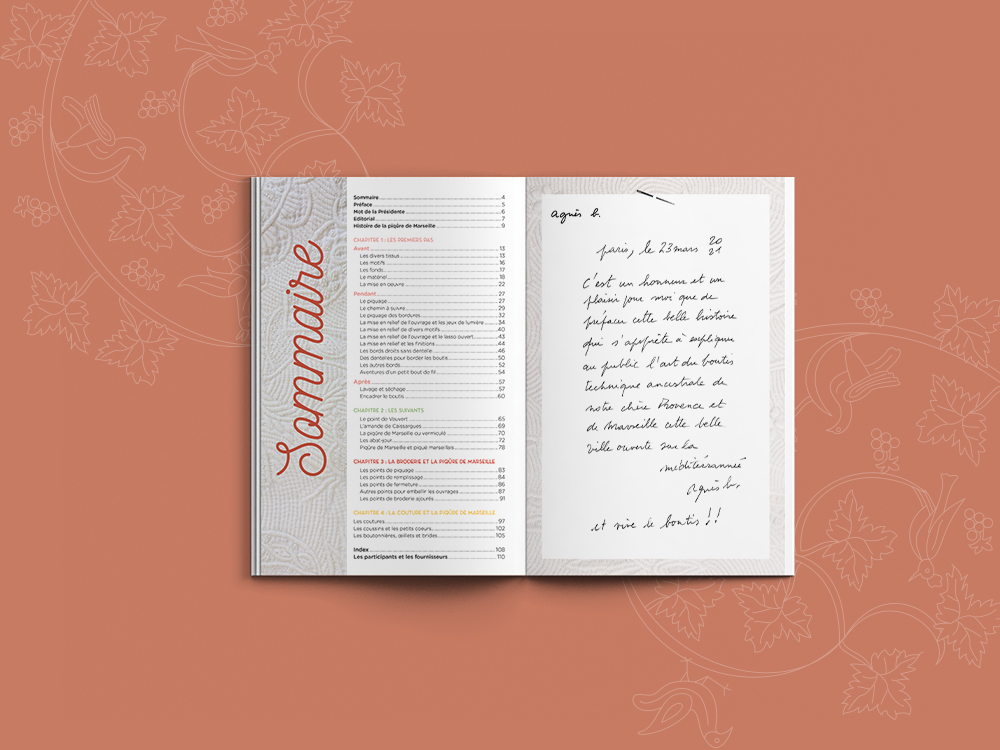 Sommaire
Sommaire 4
Préface 5
Mot de la Présidente 6
Editorial 7
Histoire de la piqûre de Marseille 9
CHAPITRE 1 : LES PREMIERS PAS
Avant 13
Les divers tissus 13
Les motifs 16
Les fonds 17
Le matériel 18
La mise en oeuvre 22
Pendant 27
Le piquage 27
Le chemin à suivre 29
Le piquage des bordures 32
La mise en relief de l'ouvrage et les jeux de lumière 34
La mise en relief de divers motifs 40
La mise en relief de l'ouvrage et le lasso ouvert 43
La mise en relief et les finitions 44
Les bords droits sans dentelle 46
Des dentelles pour border les boutis 50
Les autres bords 52
Aventures d'un petit bout de fil 54
Après 57
Lavage et séchage 57
Encadrer le boutis 60
CHAPITRE 2 : LES SUIVANTS
Le point de Vauvert 65
L'amande de Caissargues 69
La piqûre de Marseille ou vermiculé 70
Les abat-jour 72
Piqûre de Marseille et piqué marseillais 78
CHAPITRE 3 : LA BRODERIE ET LA PIQÛRE DE MARSEILLE
Les points de piquage 83
Les points de remplissage 84
Les points de fermeture 86
Autres points pour embellir les ouvrages 87
Les points de broderie ajourés 91
CHAPITRE 4 : LA COUTURE ET LA PIQÛRE DE MARSEILLE
Les coutures 97
Les coussins et les petits coeurs 102
Les boutonnières, œillets et brides 105
Index 108
Les participants et les fournisseurs 110
agnès b.
paris, le 23 mars 20
21
C'est un honneur et un
plaisir pour moi que de
préfacer cette belle histoire
qui s'apprête à expliquer
au public l'art du boutis
technique ancestrale de
notre chère Provence et
de Marseille cette belle
ville ouverte sur la
méditérrannée
agnès b.
et vive le boutis !!